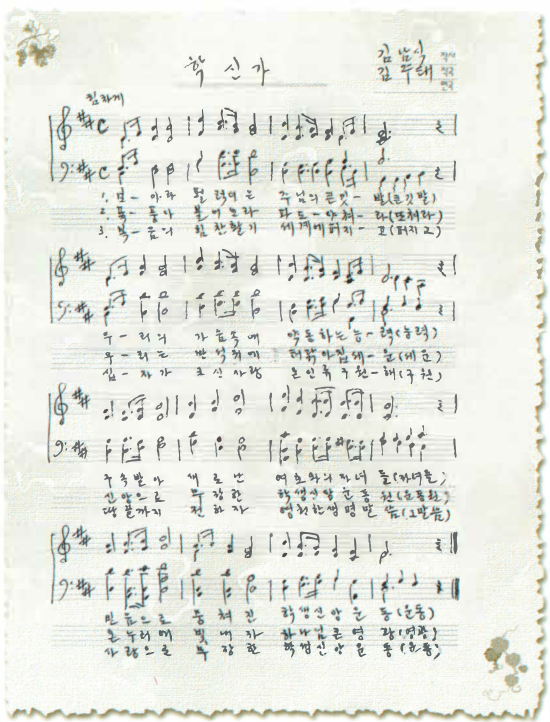 학신가
김남식 작사
김주태 작곡 편곡
힘차게
1. 보-아라 펄럭이는 주님의 큰깃-발(큰깃발)
2. 폭-풍아 불어오라 파도-야쳐-라(또쳐라)
3. 복-음의 힘찬활기 세계에퍼지-고(퍼지고)
우-리의 가슴속에 약동하는능-력(능력)
우-리는 반석위에 허락아집세-운(세운)
십-자가 크신사랑 온인류구원-해(구원)
구속받아 새로난 여호와의자녀들(자녀들)
신앙으로 무장한 학생신앙운동원(운동원)
땅끝까지 전하자 영원한생명말씀(그말씀)
믿음으로 뭉쳐진 학생신앙운동(운동)
온누리에 빛내자 하나님큰영광(영광)
사랑으로 무장한 학생신앙운동(운동)